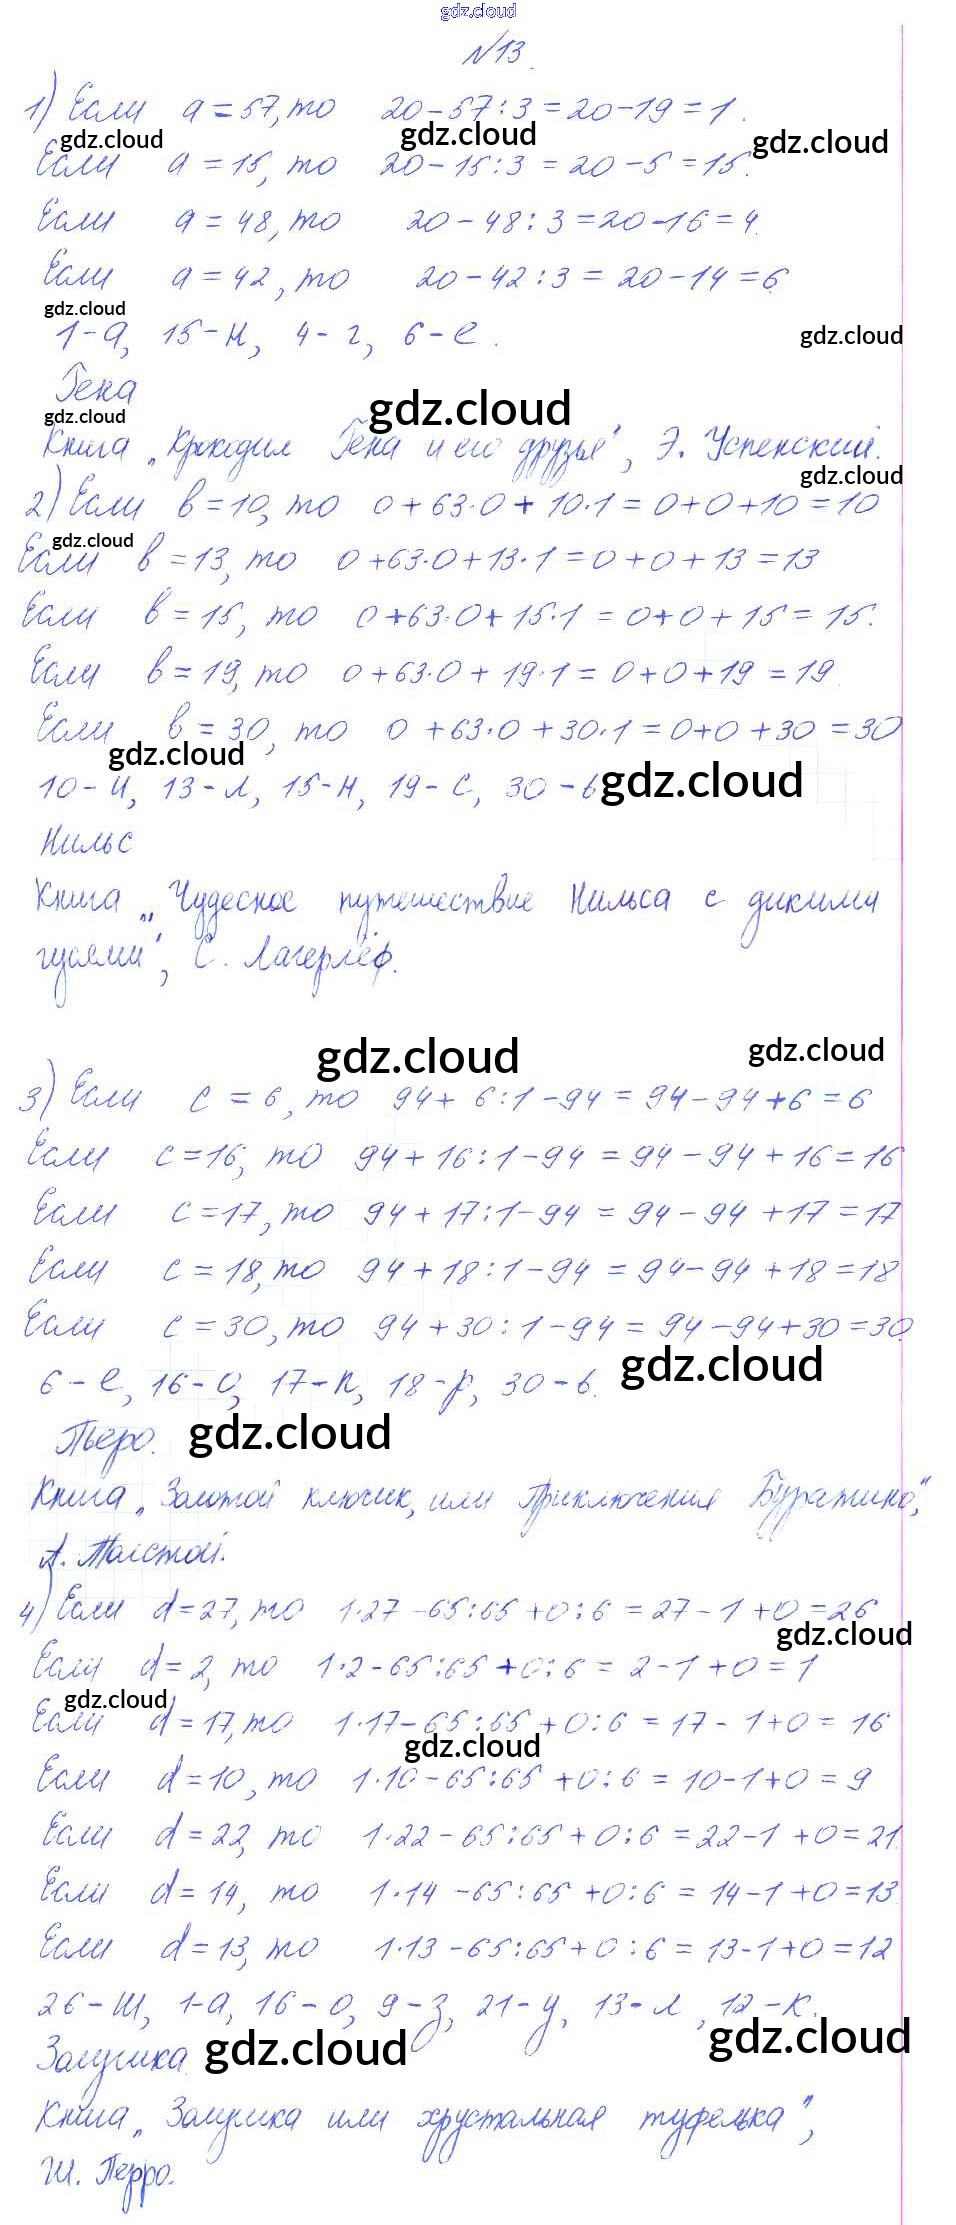 gdz.cloud
№13.
1) Если a = 57, то 20-57:3=20-19=1.
gdz.cloud gdz.cloud gdz.cloud
Если a = 15, то 20-15:3=20-5=15.
Если a = 48, то 20-48:3=20-16=4.
Если a = 42, то 20-42:3=20-14=6.
gdz.cloud
1-а, 15-н, 4-г, 6-е.
gdz.cloud
Гена
gdz.cloud gdz.cloud
Книга „Крокодил Гена и его друзья“, Э. Успенский.
gdz.cloud
2) Если в=10, то 0+63·0+10·1=0+0+10=10
gdz.cloud
Если в=13, то 0+63·0+13·1=0+0+13=13
Если в=15, то 0+63·0+15·1=0+0+15=15.
Если в=19, то 0+63·0+19·1=0+0+19=19.
Если в=30, то 0+63·0+30·1=0+0+30=30
gdz.cloud
10-и, 13-л, 15-н, 19-с, 30-ь
gdz.cloud
Нильс
Книга „Чудесное путешествие Нильса с дикими
гусями“, С. Лагерлёф.
gdz.cloud gdz.cloud
3) Если c = 6, то 94+6:1-94=94-94+6=6
Если c=16, то 94+16:1-94=94-94+16=16
Если c=17, то 94+17:1-94=94-94+17=17
Если c=18, то 94+18:1-94=94-94+18=18
Если c=30, то 94+30:1-94=94-94+30=30.
gdz.cloud
6-е, 16-о, 17-п, 18-р, 30-ь.
Пьеро.
gdz.cloud
Книга „Золотой ключик, или Приключения Буратино“,
А. Толстой.
4) Если d=27, то 1·27-65:65+0:6=27-1+0=26
gdz.cloud
Если d=2, то 1·2-65:65+0:6=2-1+0=1
gdz.cloud
Если d=17, то 1·17-65:65+0:6=17-1+0=16
gdz.cloud
Если d=10, то 1·10-65:65+0:6=10-1+0=9
Если d=22, то 1·22-65:65+0:6=22-1+0=21.
Если d=14, то 1·14-65:65+0:6=14-1+0=13.
Если d=13, то 1·13-65:65+0:6=13-1+0=12
26-ш, 1-а, 16-о, 9-з, 21-у, 13-л, 12-к.
gdz.cloud
Золушка
gdz.cloud
Книга „Золушка или хрустальная туфелька“,
Ш. Перро.